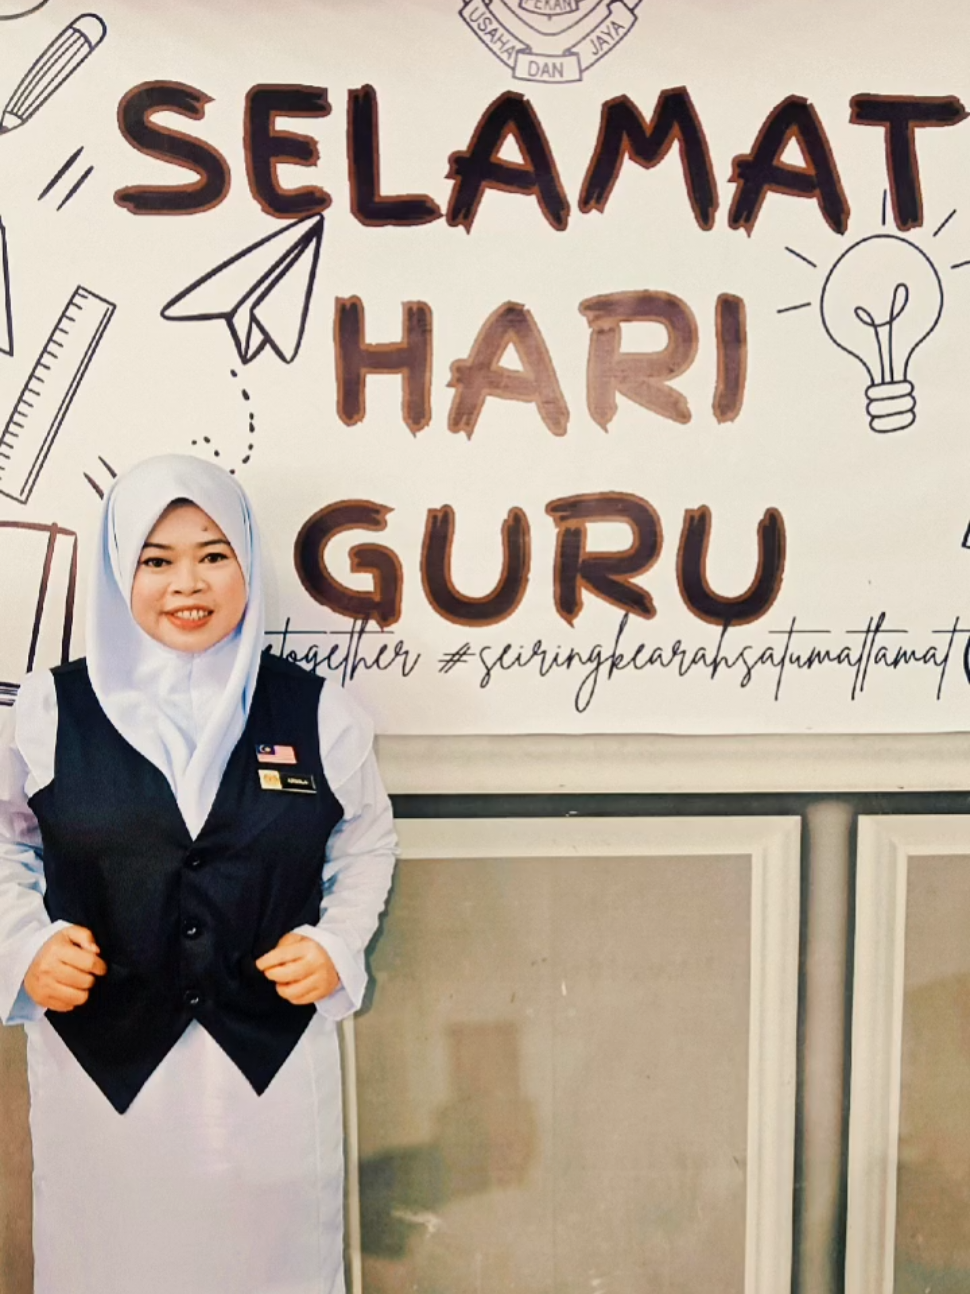 PEKAN
USAHA DAN JAYA
SELAMAT
HARI
GURU
together #seiringkearahsatumatlamat